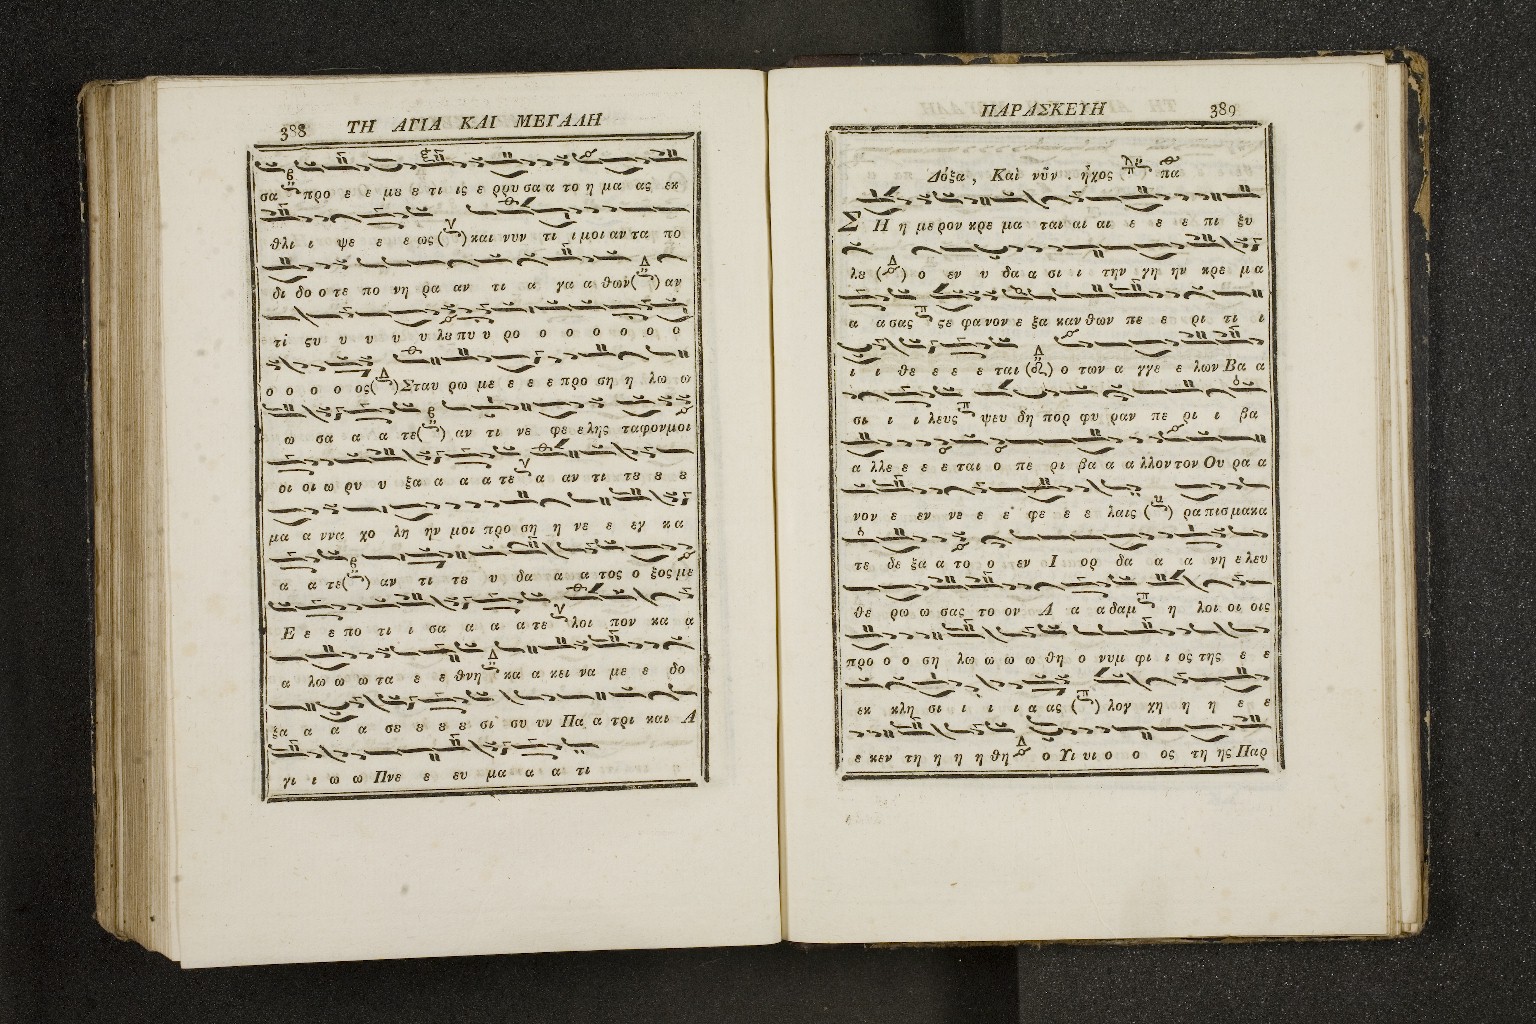 388 ΤΗ ΑΓΙΑ ΚΑΙ ΜΕΓΑΛΗ
σα προ ε ε μȣ ε τι ις ε ρρυ σα α το η μα ας εκ
θλι ι ψε ε ε ως και νυν τι ι μοι αν τα πο
δι δο ο τε πο νη ρα αν τι α γα α θων αν
τί ςυ υ υ υ υ λȣ πυ υ ρο ο ο ο ο ο ο
ο ο ο ο ος Σταυ ρω με ε ε ε προ ση η λω ω
ω σα α α τε αν τι νε φε ε λης ταφονμοι
οι οι ω ρυ υ ξα α α α τε α αν τι τȣ ȣ ȣ
μα α ννα χο λη ην μοι προ ση η νε ε εγ κα
α α τε αν τι τȣ υ δα α α τος ο ξος με
Ε ε ε πο τι ι σα α α α τε λοι πον κα α
α λω ω ω τα ε ε θνη κα α κει να με ε δο
ξα α α α σε ε ε ε σι συ υν Πα α τρι και Α
γι ι ω ω Πνε ε ευ μα α α τι
ΠΑΡΑΣΚΕΥΗ 389
Δόξα, Καὶ νῦν. ἦχος πα
ΣΗ η με ρον κρε μα ται αι αι ε ε ε πι ξυ
λȣ ο εν υ δα α σι ι την γη ην κρε μα
α α σας ςε φα νον ε ξα καν θων πε ε ρι τι ι
ι ι θε ε ε ε ται ο των α γγε ε λων Βα α
σι ι ι λευς ψευ δη πορ φυ ραν πε ρι ι βα
α λλε ε ε ε ται ο πε ρι βα α α λλον τον Ου ρα α
νον ε εν νε ε ε φε ε ε λαις ρα πισ μα κα
τε δε ξα α το ο εν Ι ορ δα α α νη ε λευ
θε ρω ω σας το ον Α α α δαμ η λοι οι οις
προ ο ο ση λω ω ω ω θη ο νυμ φι ι ος της ε ε
εκ κλη σι ι ι ι α ας λογ χη η η ε ε
ε κεν τη η η η θη ο Υι υι ο ο ος τη ης Παρ